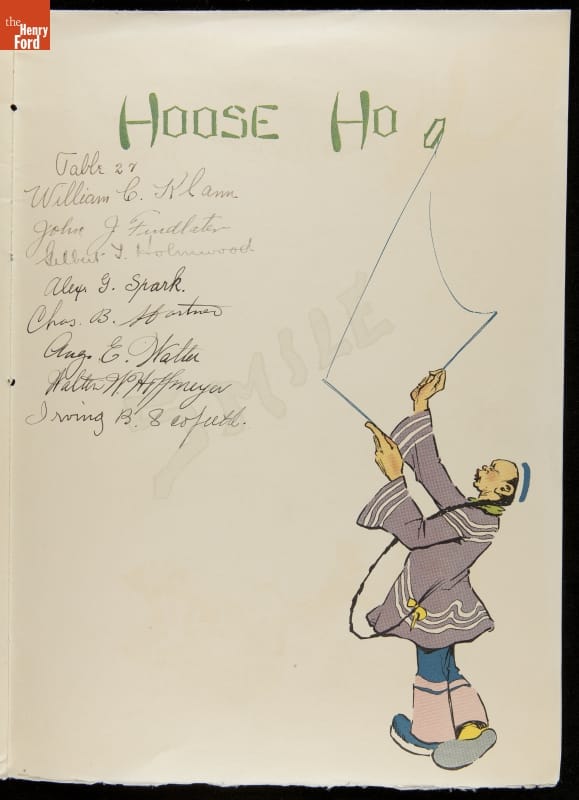 the
Henry
Ford
HOOSE HOO
Table 27
William C. Klann
John J Findlater
Gilbert T. Holmwood
Alex. G. Spark.
Chas. B. Hartner
Aug. E. Walter
Walter W Hoffmeyer
Irving B.
SMILE